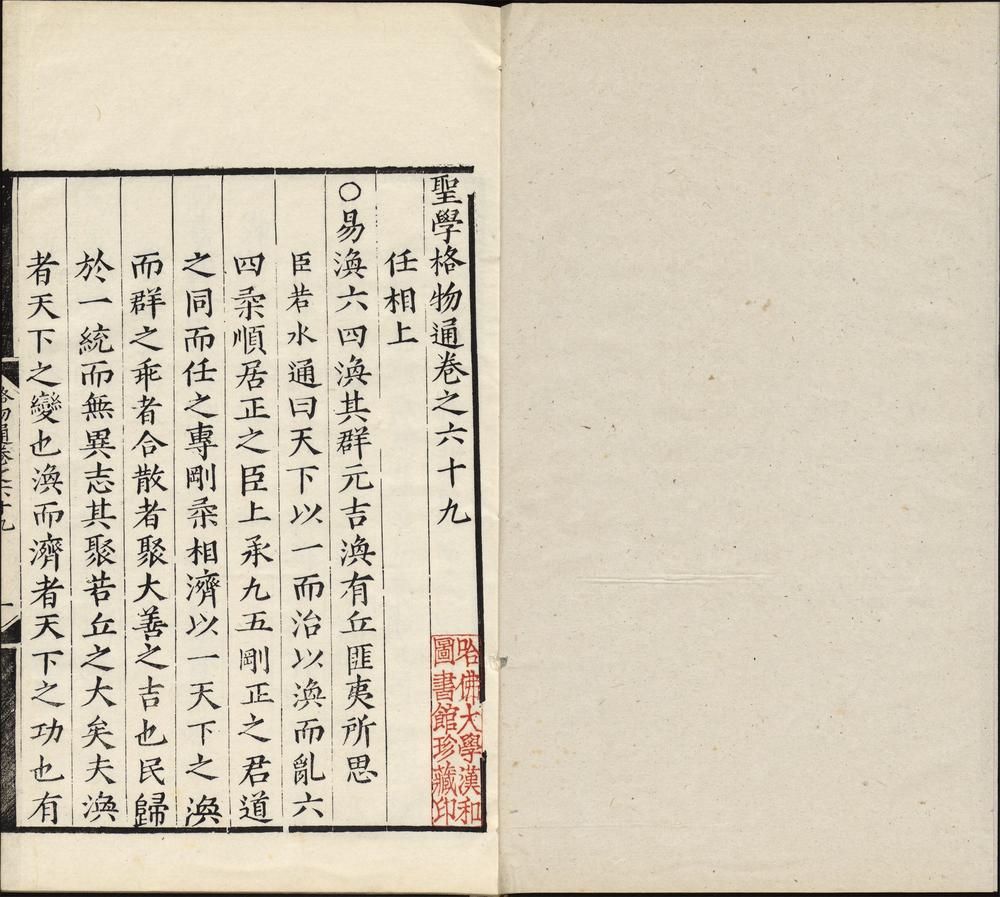 聖學格物通卷之六十九
任相上
○易渙六四渙其群元吉渙有丘匪夷所思
臣若水通曰天下以一而治以渙而亂六
四柔順居正之臣上承九五剛正之君道
之同而任之專剛柔相濟以一天下之渙
而群之乖者合散者聚大善之吉也民歸
於一統而無異志其聚若丘之大矣夫渙
者天下之變也渙而濟者天下之功也有
格物通卷之六十九
一
哈佛大學漢和
圖書館珍藏印